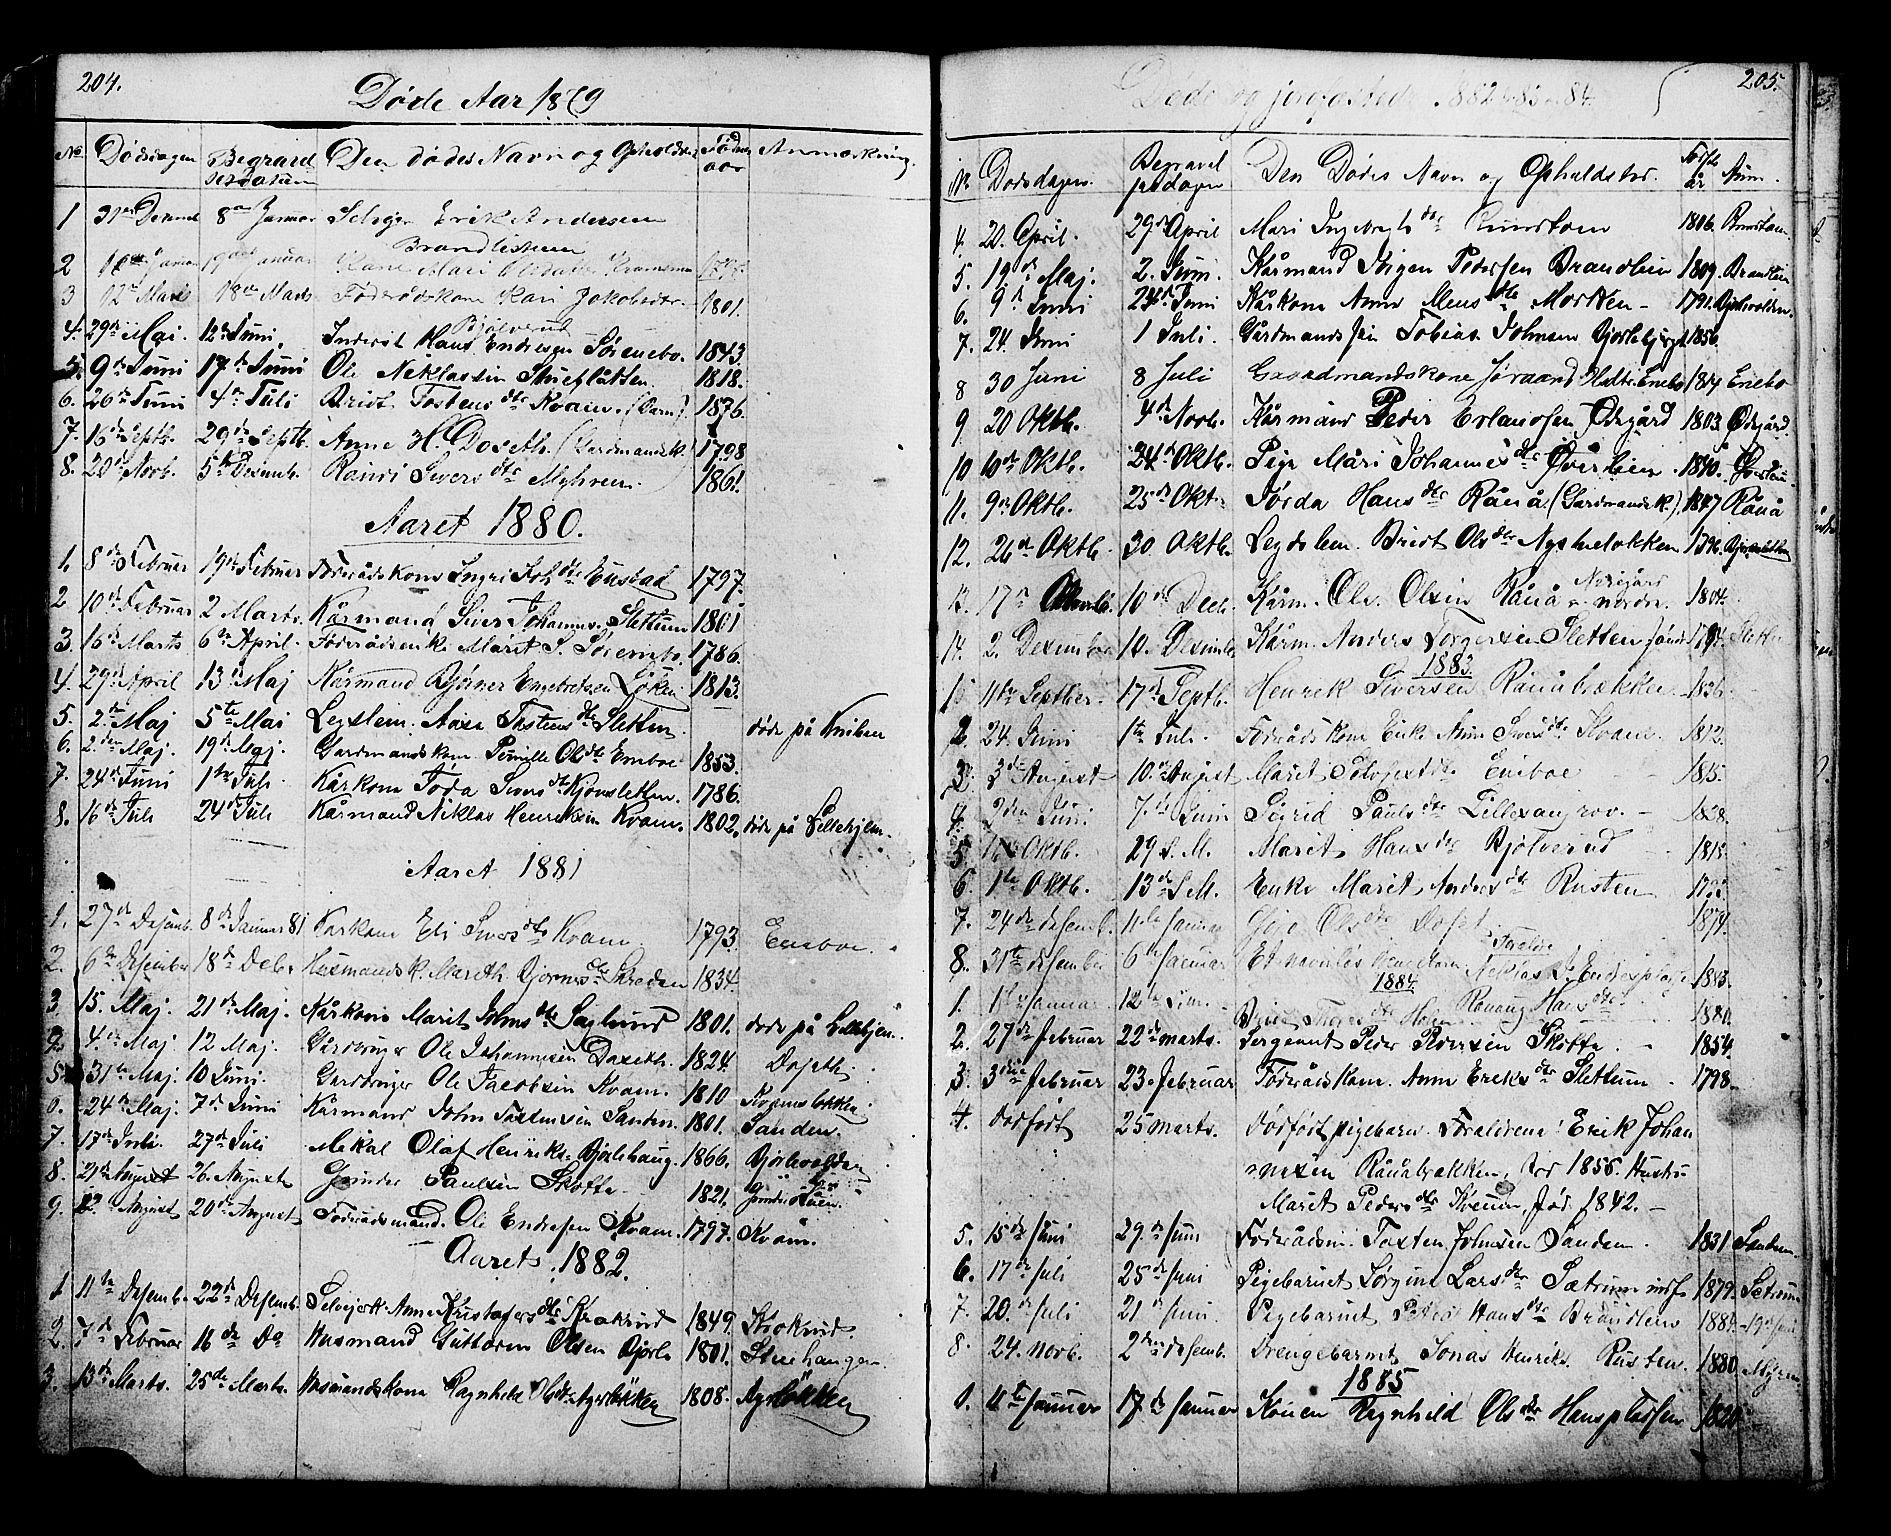 204.
Døde Aar 1879
No Dødsdagen Begravelsesdatum Den dødes Navn og Opholdst Fødsels aar Anmærkning.
1 31te Decemb 8de Januar Selvger Erik Andersen
Brandlistuen
2 Januar Kone Mari 
3 12te Marts 18de Marts Føderådskone Kari Jakobsdtr. 1801.
Bjølverud
4. 29de Mai. 12te Juni, Inderst Hans Endresen Sørenebo. 1843
5. 9de Juni 17de Juni Ole Niklassen Stueflåtten. 1818.
6. 26de Juni 4de Juli Bridt Tostens dtr Kvam. (Barn) 1876.
7. 16de Septb. 29de Septb. Anne H. Doseth. (Gardmandsk.) 1798
8. 20de Novb. 5te Desemb. Randi Sivers dtr Myhren. 1861.
Aaret 1880.
1. 8de Februar 19de Februar Føderådskone Ingri Joh dtr Enstad 1797.
2 10de Februar 2 Marts. Kårmand Siver Johannes. Slettum 1801
3. 16de Marts 6te April. Føderådsenke Marit S. Sørembo. 1786.
4. 29de April 13de Maj Kårmand Bjørner Engebretsen Løken. 1813.
5. 2den Maj 5te Mai Legdslem. Aase Tostens dtr Sletten. døde på Kniben
6. 2den Maj. 19de Maj. Gardmandskon. Pernille Ols dtr Eneboe 1853.
7. 24de Juni 1ste Juli Kårkone Toda Sivers dtr Kjønsletten. 1786.
8. 16de Juli 24de Juli Kårmand Niklas Henriksen Kvam. 1802. døde på Lillehjem.
Aaret 1881
1. 27de Desemb. 8de Januar 81 Karkone Eli Sivers dtr Kvam 1793. Eneboe.
2. 6te Desember 18de Deb. Husmandsk. Mareth Bjørns dtr Skreden 1834.
3 15. Maj. 21de Maj. Kårkone Marit Johns dtr Saglund 1801. døde på Lillehjem.
4. 4de Maj 12 Maj. Gårdbruger Ole Johannesen Daseth. 1824. Doseth.
5. 31te Maj. 10 Juni. Gardbruger Ole Jacobsen Kvam. 1810 Kvamsløkken
6. 24de Maj 7de Juni Kårmand John Tostensen Sanden. 1801. Sanden.
7. 17de Juli. 27de Juli Mekal Olaf Henriks. Bjørlihaug. 1866. Bjørlivolden
8. 21de August 26. August Gjinder Paulsen Skotte 1821.
9. 12. August 20de August Føderådsmand. Ole Endresen Kvam. 1797. Kvam.
Aaret 1882.
1 11te Desemb. 22de Desemb. Selvejersk Anne Kristofers dtr Krokrud 1849. Krokrud.
2. 7de Februar 16de Do Husmand Guttorm Olsen Bjorli 1801. Stuehaugen
3. 13de Marts. 25de Marts. Husmandskone Ragnhild Olsdtr Agerløkken 1808. Agerløkken
205.
Døde og jordfæstede 1882 83 84.
No Dødsdagen. Begravelsesdagen Den Dødes Navn og Opholdsted. Føds. år Anm.
4. 20. April. 29de April Mari Ingebregts dtr Runstom 1806. Runstom
5. 19de Maj. 2. Juni. Kårmand Jørgen Pedersen Brandliin 1809. Brandliin
6. 9de Juni 24de Juni Kårkone Anne Mons dtr Morken - 1791. Bjorlivolden
7. 24. Juni 1 Juli. Gårdmands søn Tobias Johnsen Bjorlibjerget 1856.
8 30 Juni 8 Juli Gaardmandskone Jøraand Enebo Enebo
9. 20 Oktb. 4de Novb. Kårmand Peder Erlandsen Ødegård 1803. Ødegård.
10 10de Oktb. 24de Oktb. Pige Mari Johannes dtr Øverlien. 1840. Øverlien
11. 9de Oktb. 25de Okt Jørda Hans dtr Rånå (Gardmandsk.) 1847 Rånå
12. 26de Oktb. 30. Oktb. Legdslem. Bridt Ols dtr Nystueløkken 1796.
13. 17de 10de Decb. Kårm. Ole. Olsen Rånå nordre. 1804.
14. 2. Desember 10. Desemb. Kårm. Anders Torgersen Sletten 1794. Sletten
1883.
11te Septber. 17de Septb. Henrik Siversen Rånåbækken 1836.
2 24. Juni 1te Juli. Føderådskone Enke Anne Sivers dtr Kvam. 1812.
3. 3de August 10. August Maret Eneboe 1815.
4. 2den Juni. 7de Juni Sigrid Pauls dtr Lillesangrov. - 1828.
5 16de Oktb. 29 s. M. Marit Hans dtr Bjølverud 1818.
6. 1te Oktb. 13de S M. Enke Marit Anders dtr Rusten 1793.
7. 24de desemb. 11te Januar Ols dtr Doset 1874.
8. 31te desember 6te januar Et navnløs 1883.
1884.
1. 1ste januar 12te Rånaug Hans dtr
Holen 1880.
2. 27de februar 22de marts. Sergeant Peder Pedersen Skotte. 1854.
3. 3die februar 23. februar Føderådskone. Anne Eriks dtr Slettum 1798.
4. dødfødt 25 marts. dødfødt pigebarn. Forældrene: Erik Johan
nesen Rånåbækken, før 1856. Hustru
Maret Peders dtr Kvenn, fød. 1842. -
5. 15de juni 29de juni Føderådsm. Tosten Johnsen Sanden. 1831 Sanden.
6. 17de juli 25de juni Pigebarnet Jørgine Lars dtr Sætrum 1879. Setrum
7. 20. de juli 21de juni. Pigebarnet Petra Hans dtr Brandlien 1884
8. 24. novb. 2den desemb. Drengebarnet Jonas Henriks. Rusten. 1880. Myren
1885
1. 11te januar 17de januar Konen Ragnhild Ols dtr Hansplassen 1820